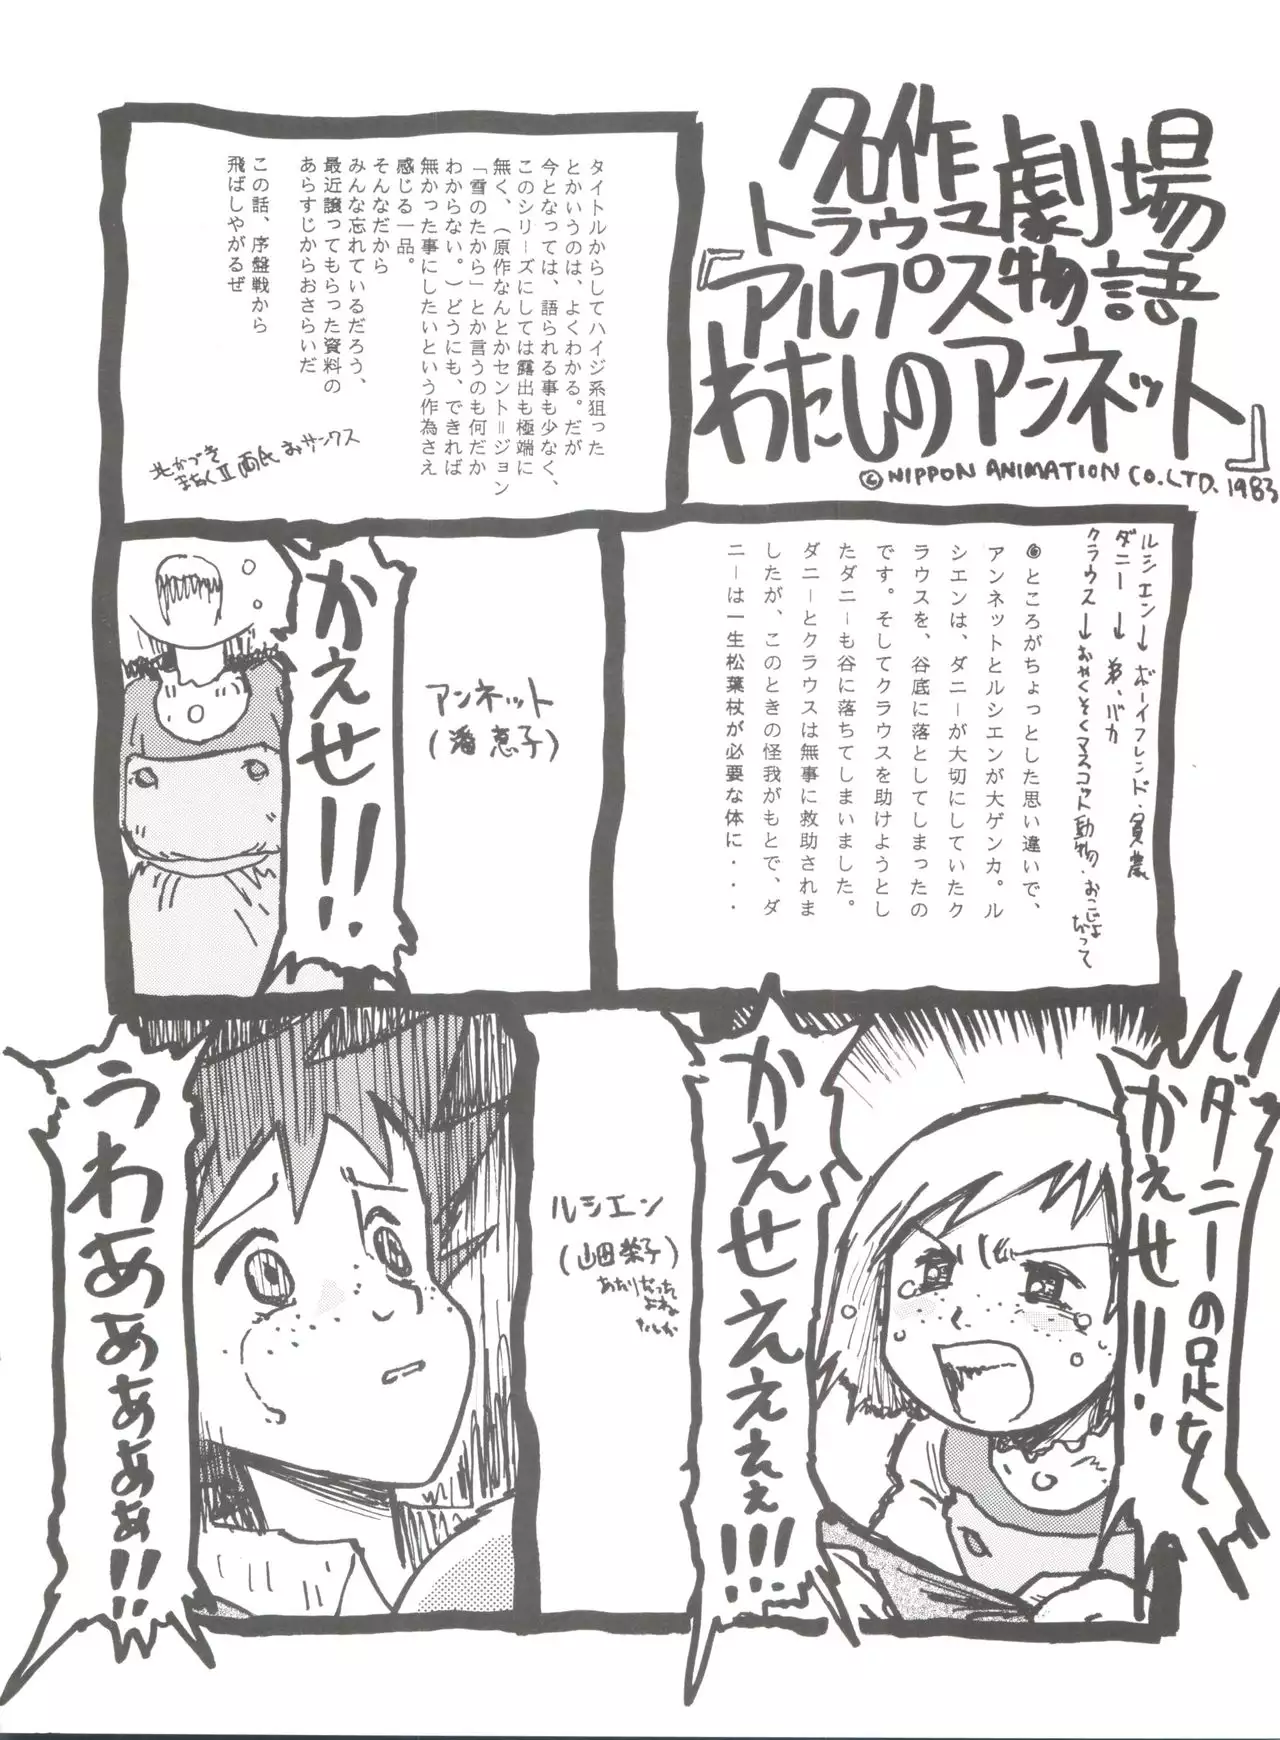 名作
トラウマ劇場
『アルプス物語
わたしのアンネット』
©NIPPON ANIMATION CO.LTD. 1983
タイトルからしてハイジ系狙った
とかいうのは、よくわかる。だが
今となっては、語られる事も少なく、
このシリーズにしては露出も極端に
無く、（原作なんとかセント＝ジョン
「雪のたから」とか言うのも何だか
わからない。）どうにも、できれば
無かった事にしたいという作為さえ
感じる一品。
そんなだから
みんな忘れているだろう、
最近譲ってもらった資料の
あらすじからおさらいだ
この話、序盤戦から
飛ばしやがるぜ
北かづき
まちくⅡ両氏 みサンクス
ルシエン→ボーイフレンド・貧農
ダニー→弟、バカ
クラウス→おやくそくマスコット動物・おこじょ
だって
◎ところがちょっとした思い違いで、
アンネットとルシエンが大ゲンカ。ル
シエンは、ダニーが大切にしていたク
ラウスを、谷底に落としてしまったの
です。そしてクラウスを助けようとし
たダニーも谷に落ちてしまいました。
ダニーとクラウスは無事に救助されま
したが、このときの怪我がもとで、ダ
ニーは一生松葉杖が必要な体に・・・
アンネット
(潘恵子)
かえせ!!
ダニーの足を
かぇせ!!
かえせえぇぇぇ!!!
ルシエン
(山田栄子)
あたりだったよね
たしか
うわあぁあぁぁぁ!!